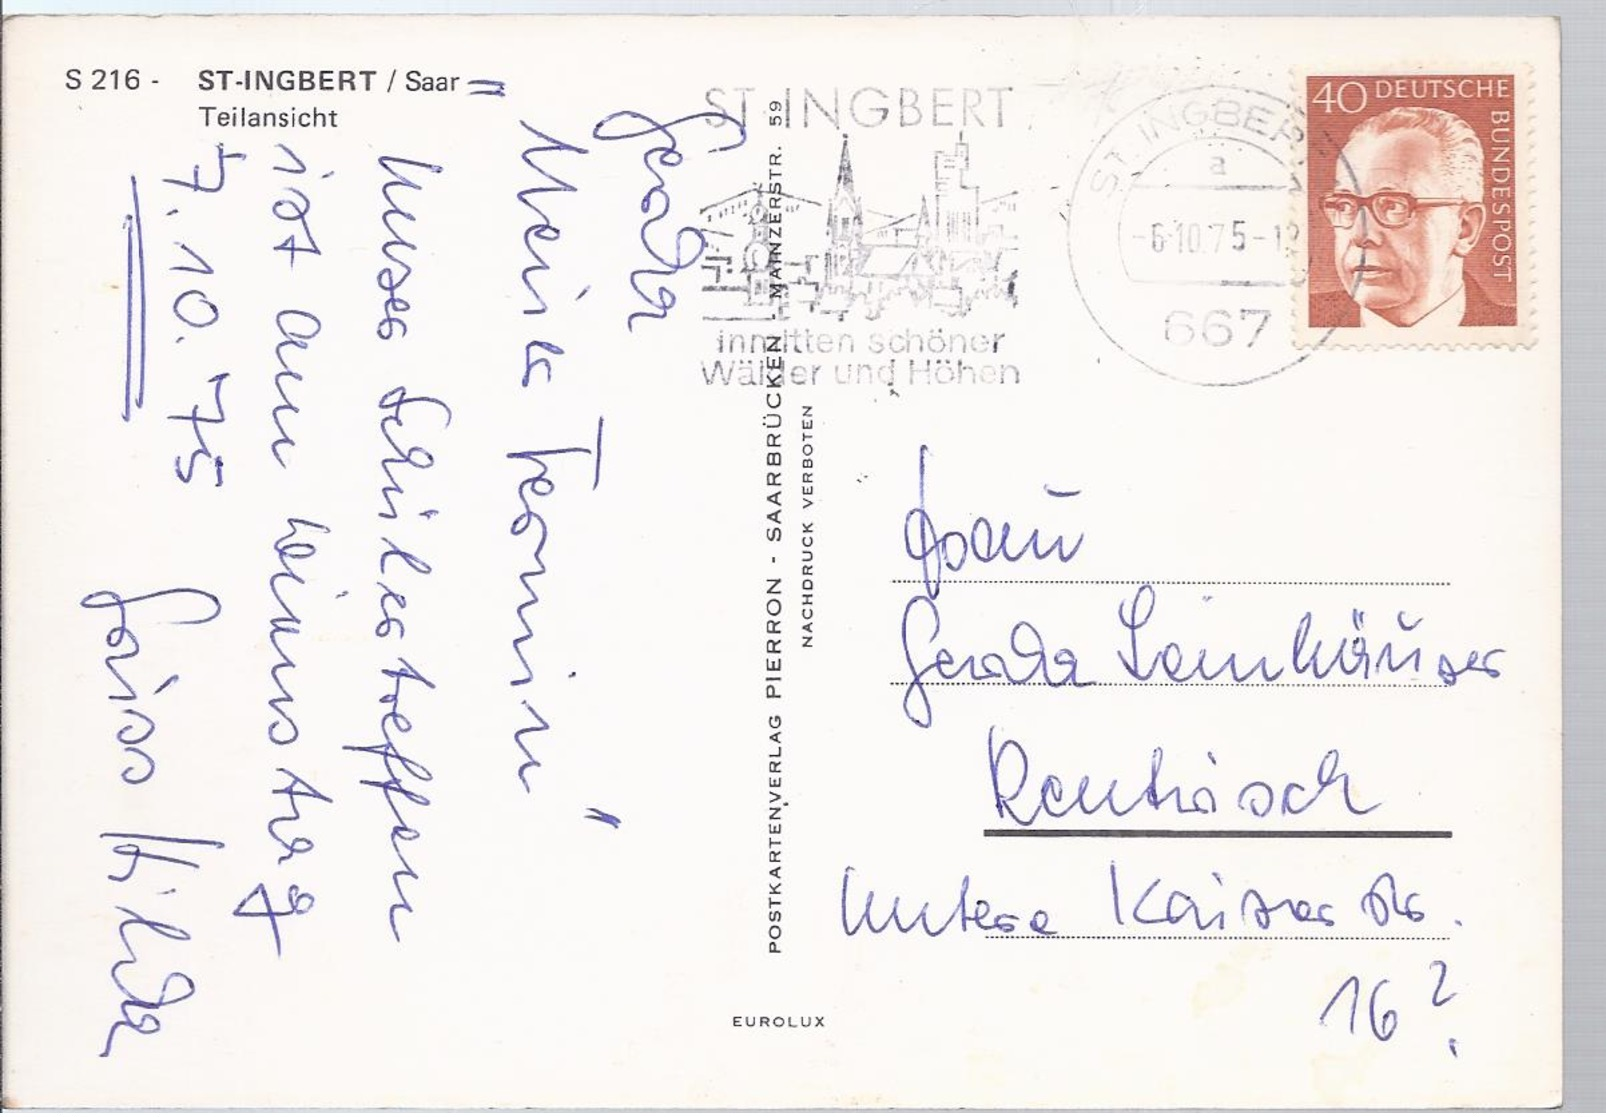 S 216 - ST-INGBERT / Saar
Teilansicht
Gerda
" Mein Termin "
Unser Schülertreffen
ist am Dienstag
7.10.75
Hilda
ST. INGBERT
inmitten schöner
Wälder und Höhen
ST. INGBERT
a
-6.10.75-12
667
40 DEUTSCHE
BUNDESPOST
POSTKARTENVERLAG PIERRON - SAARBRÜCKEN - MAINZERSTR. 59
NACHDRUCK VERBOTEN
EUROLUX
Frau
Gerda
Rentrisch
Untere Kaiserstr.
16 ?